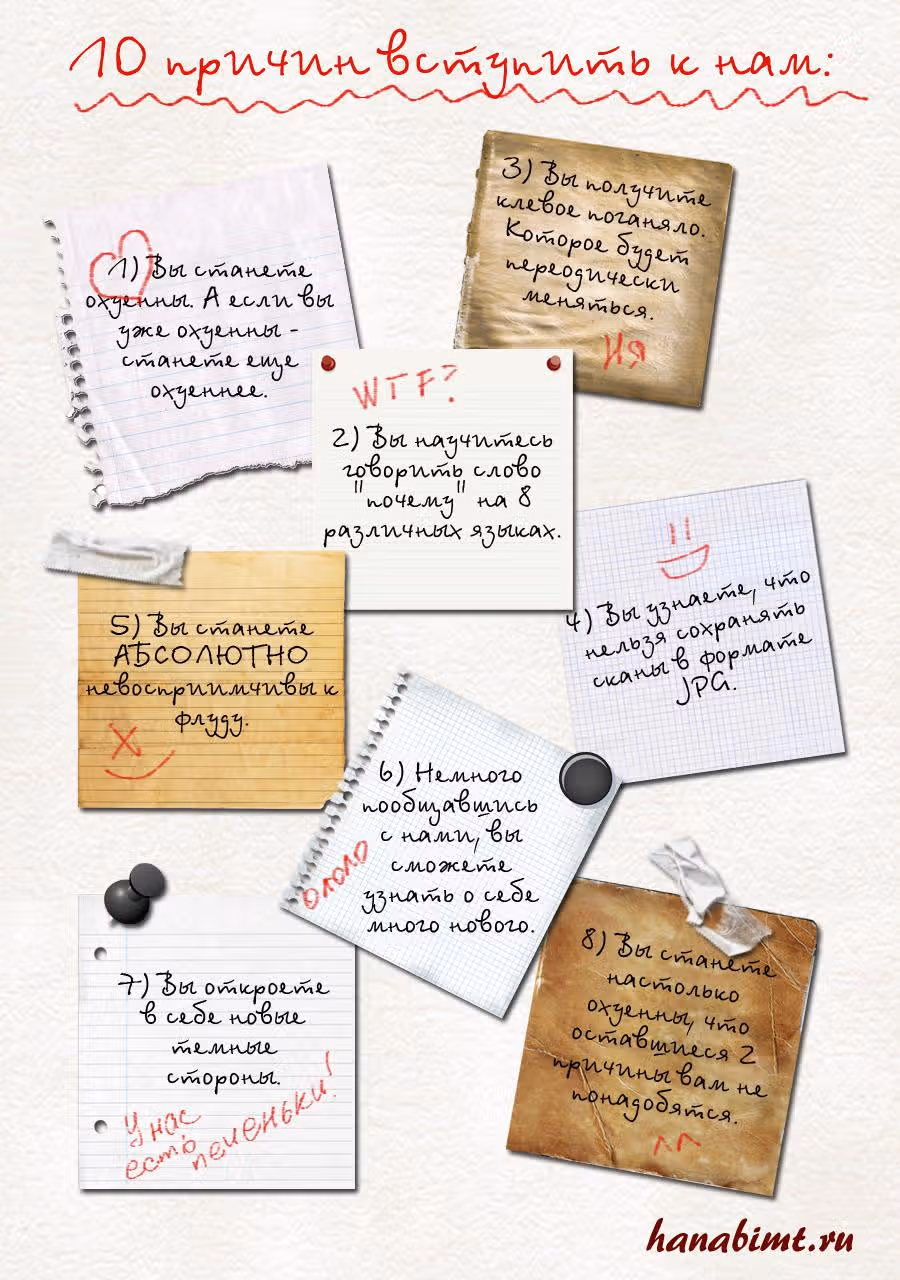 10 причин вступить к нам:
1) Вы станете
охуенны. А если вы
уже охуенны -
станете еще
охуеннее.
WTF?
2) Вы научитесь
говорить слово
"почему" на 8
различных языках.
3) Вы получите
клевое поганяло.
Которое будет
переодически
меняться.
Ня
4) Вы узнаете, что
нельзя сохранять
сканы в формате
JPG.
5) Вы станете
АБСОЛЮТНО
невосприимчивы к
флуду.
6) Немного
пообщавшись
с нами, вы
сможете
узнать о себе
много нового.
ололо
7) Вы откроете
в себе новые
темные
стороны.
У нас
есть печеньки!
8) Вы станете
настолько
охуенны, что
оставшиеся 2
причины вам не
понадобятся.
^^
hanabimt.ru